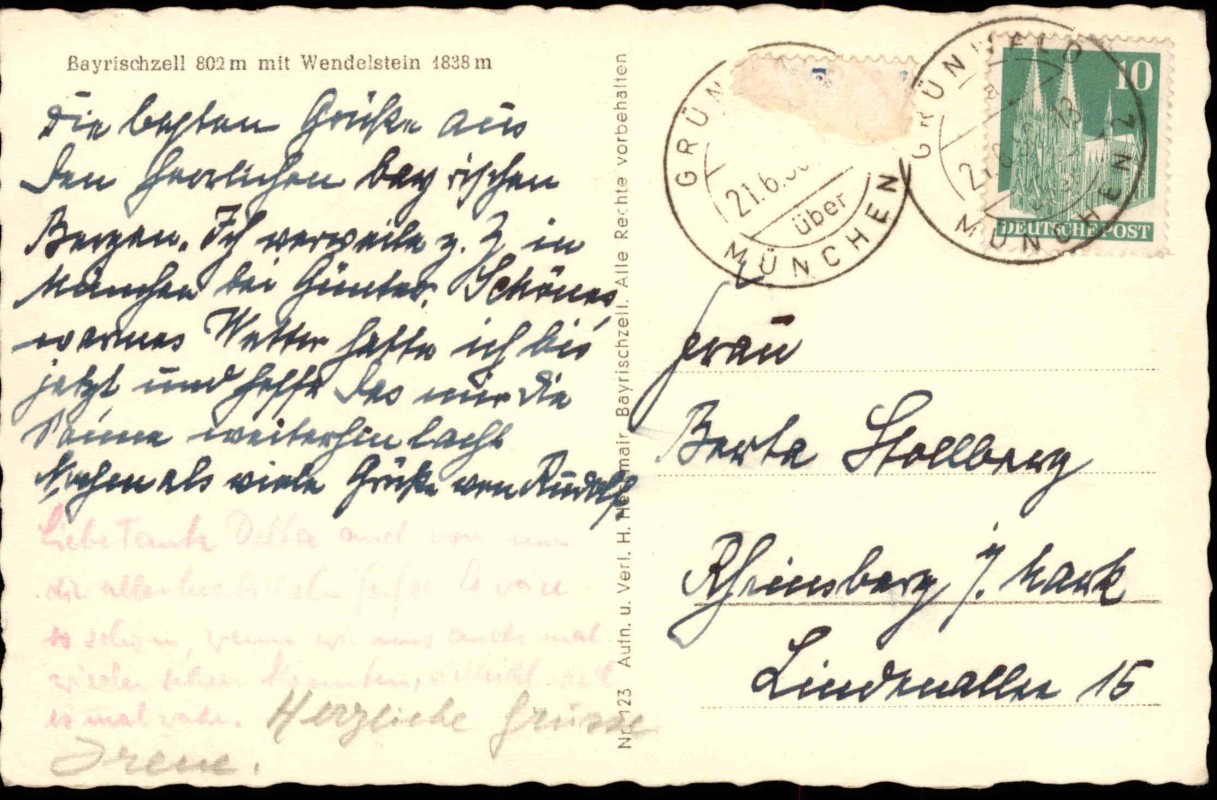 Bayrischzell 802 m mit Wendelstein 1838 m
Die besten Grüße aus
den herrlichen bayrischen
Bergen. Ich verweile z. Z in
München bei Günter. Schönes
warmes Wetter hatte ich bis
jetzt und hoffe das mir die
Sonne weiterhin lacht
Nochmals viele Grüße von Rudolf
Liebe Tante Della auch von mir
die allerherzlichsten
so schön, wenn wir uns auch mal
wieder sehen könnten, vielleicht
es mal wahr. Herzliche Grüsse
Irene.
Nr. 123 Aufn. u. Verl. H. H mair, Bayrischzell. Alle Rechte vorbehalten
GRÜN
21.6.
über
MÜNCHEN
GRÜNWALD
MÜNCHEN 2
10
DEUTSCHE POST
Frau
Berta Stollberg
Rheinsberg / Mark
Lindenallee 15